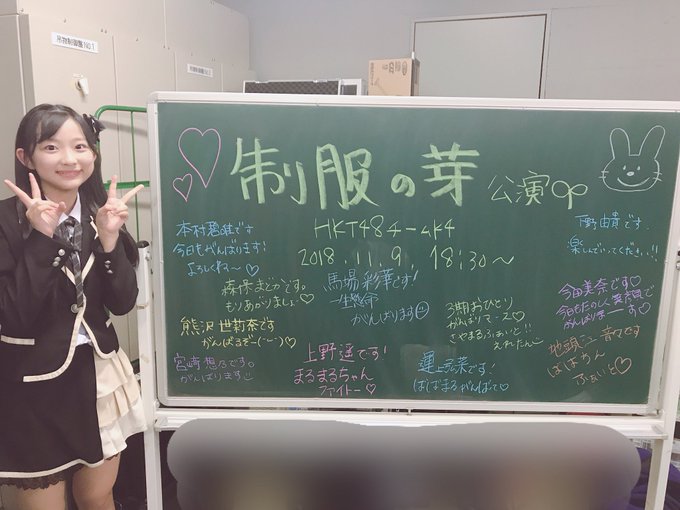 吊物制御盤No.1
制服の芽 公演
HKT48チームK4
2018.11.9. 18:30～
本村碧唯です
今日もがんばります!
よろしくね〜♡
森保まどかです。
もりあがりましょ♡
熊沢世莉奈です
がんばるぞ(ー・ー)♡
宮﨑想乃です。
がんばります
馬場彩華です!
一生懸命
がんばります
上野遥です!
まるまるちゃん
ファイトー♡
3期おひとり
がんばりマース♡
さやまるふぁいと!!
えれたんこ
運上弘菜です!
ばばまるがんばて♡
下野由貴です.
楽しんでいってください!!
今田美奈です♡
今日もたのしく笑顔で
がんばりまーーす♡
地頭江音々です
ばばちゃん
ふぁいと♡